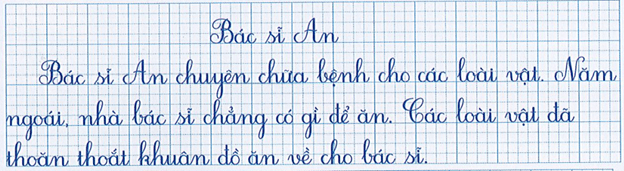 Bác sĩ An
Bác sĩ An chuyên chữa bệnh cho các loài vật. Năm
ngoái, nhà bác sĩ chẳng có gì để ăn. Các loài vật đã
thoăn thoắt khuân đồ ăn về cho bác sĩ.